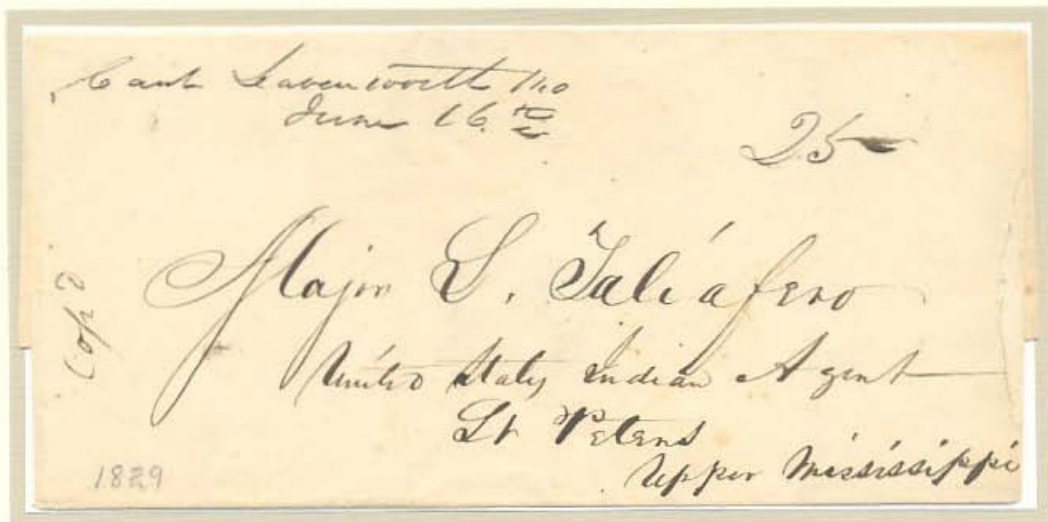 Cant Leavenworth Mo
June 16th
25
Major L. Taliafero
United States Indian Agent
St Peters
Upper Mississippi
Copd
1829